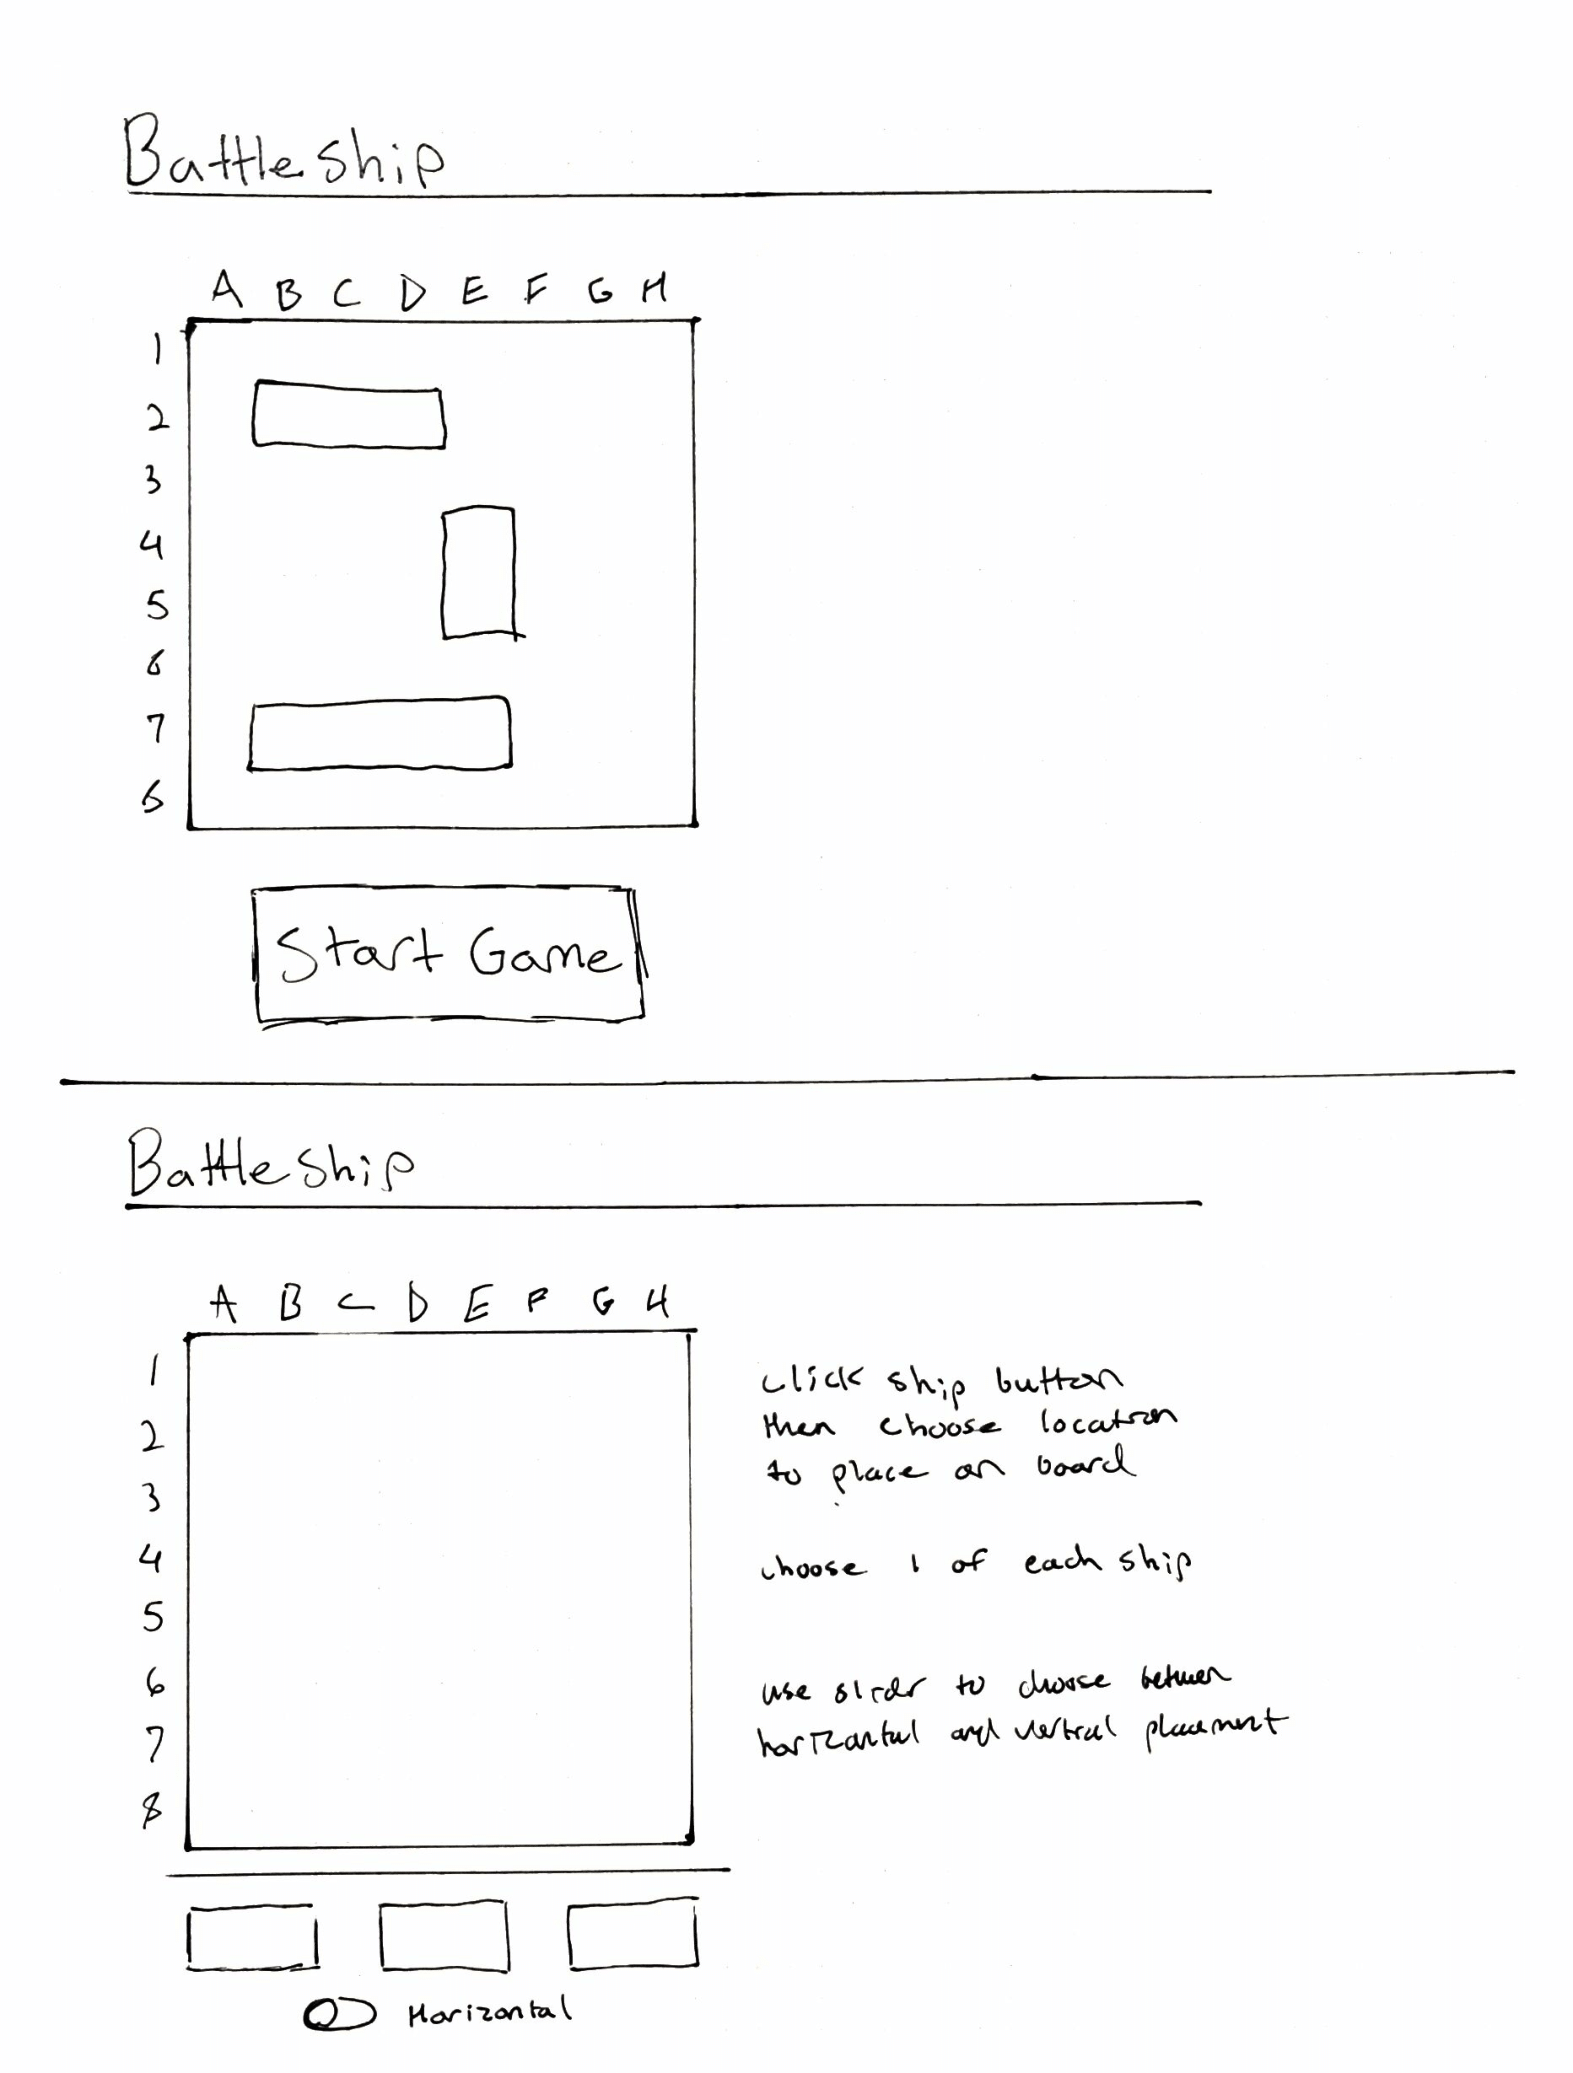 Battleship
A B C D E F G H
1
2
3
4
5
6
7
6
Start Game
Battleship
A B C D E F G H
1
2
3
4
5
6
7
8
click ship button
then choose location
to place on board
choose 1 of each ship
use slider to choose between
horizontal and vertical placement
Horizontal